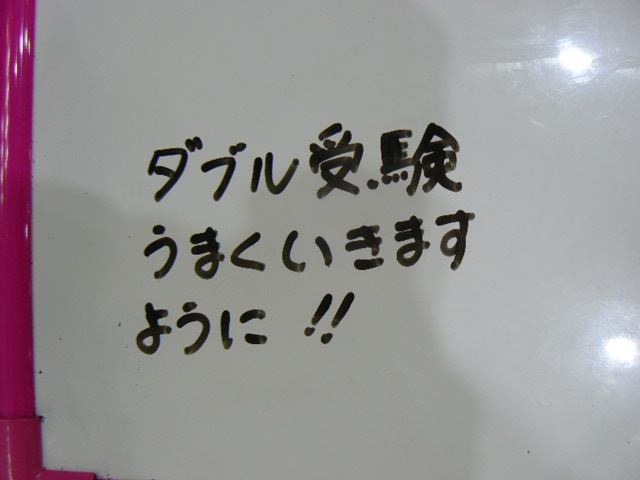 ダブル受験
うまくいきます
ように!!